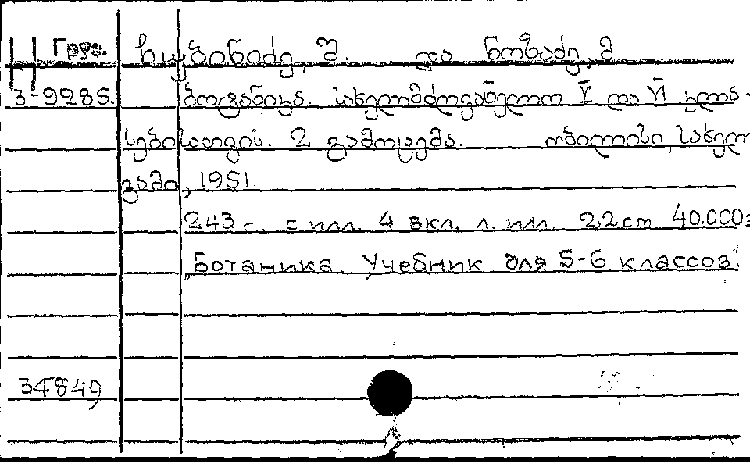 Груз. ჩხუბინიძე, შ. და ჩოზაძე, გ.
3-9285. ბოტანიკა. სახელმძღვანელო V და VI კლა-
სებისათვის. 2 გამოცემა. თბილისი, სახელ-
გამი, 1951.
243 с. с илл. 4 вкл. л. илл. 22 cm 40.000з
„Ботаника. Учебник для 5-6 классов."
34849